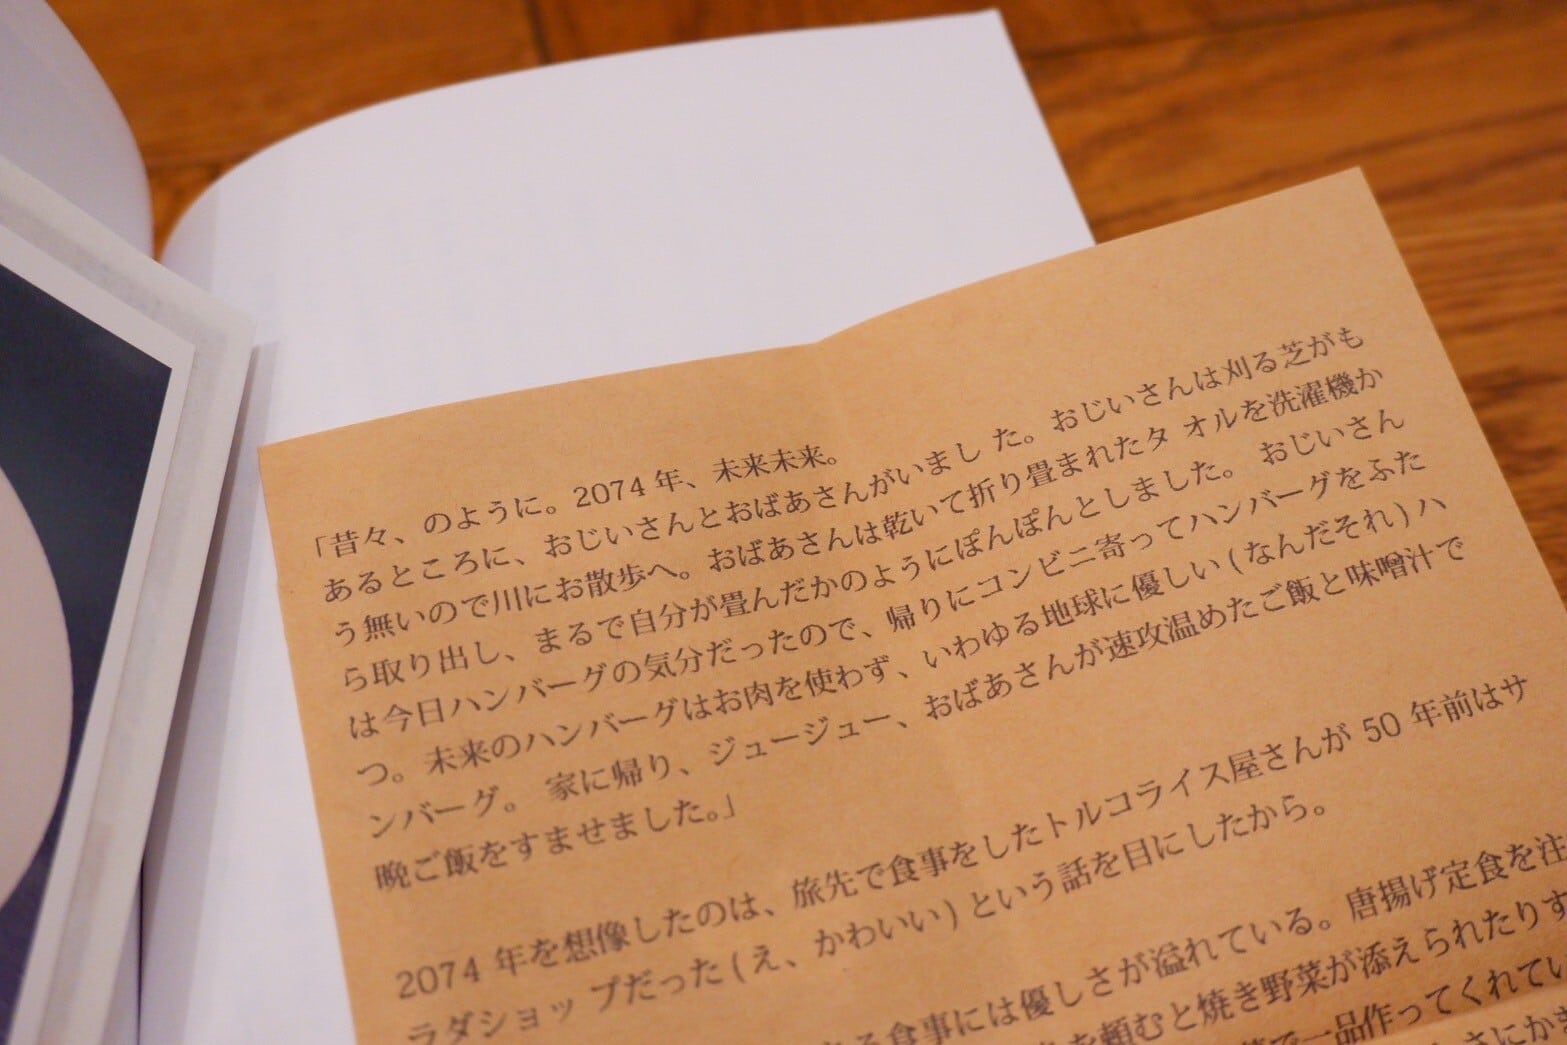 「昔々、のように。2074 年、未来未来。
あるところに、おじいさんとおばあさんがいまし た。おじいさんは刈る芝がも
う無いので川にお散歩へ。おばあさんは乾いて折り畳まれたタ オルを洗濯機か
ら取り出し、まるで自分が畳んだかのようにぽんぽんとしました。 おじいさん
は今日ハンバーグの気分だったので、帰りにコンビニ寄ってハンバーグをふた
つ。未来のハンバーグはお肉を使わず、いわゆる地球に優しい(なんだそれ)ハ
ンバーグ。 家に帰り、ジュージュー、おばあさんが速攻温めたご飯と味噌汁で
晩ご飯をすませました。」
2074 年を想像したのは、旅先で食事をしたトルコライス屋さんが 50 年前はサ
ラダショッ プだった(え、かわいい)という話を目にしたから。
る食事には優しさが溢れている。唐揚げ定食を注
を頼むと焼き野菜が添えられたりす
で一品作ってくれてい